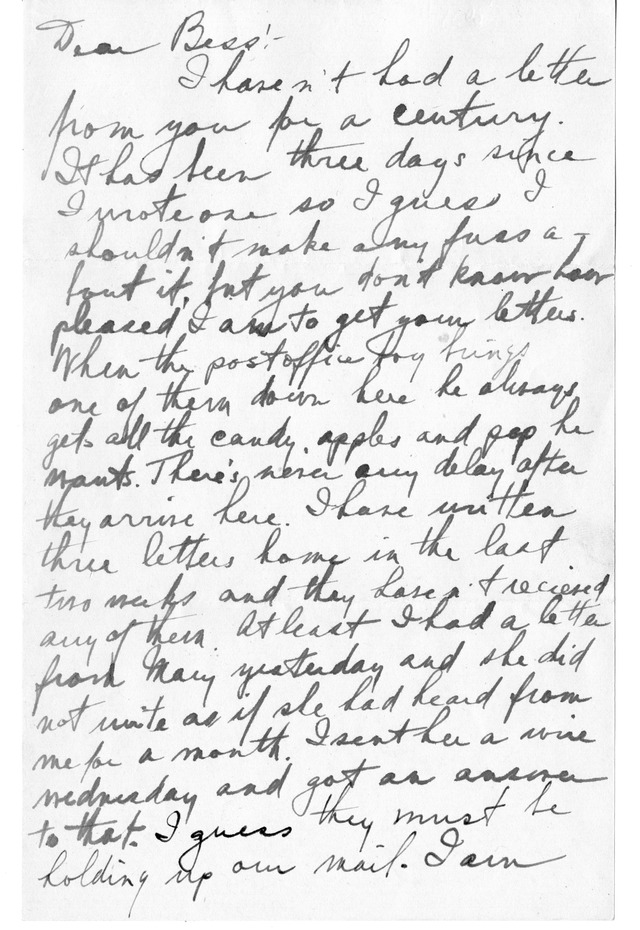 Dear Bess:-
I haven't had a letter
from you for a century.
It has been three days since
I wrote one so I guess I
shouldn't make any fuss a-
bout it, but you don't know how
pleased I am to get your letters.
When the postoffice boy brings
one of them down here he always
gets all the candy, apples and pop he
wants. There's never any delay after
they arrive here. I have written
three letters home in the last
two weeks and they haven't recieved
any of them. At least I had a letter
from Mary yesterday and she did
not write as if she had heard from
me for a month. I sent her a wire
wednesday and got an answer
to that. I guess they must be
holding up our mail. I am